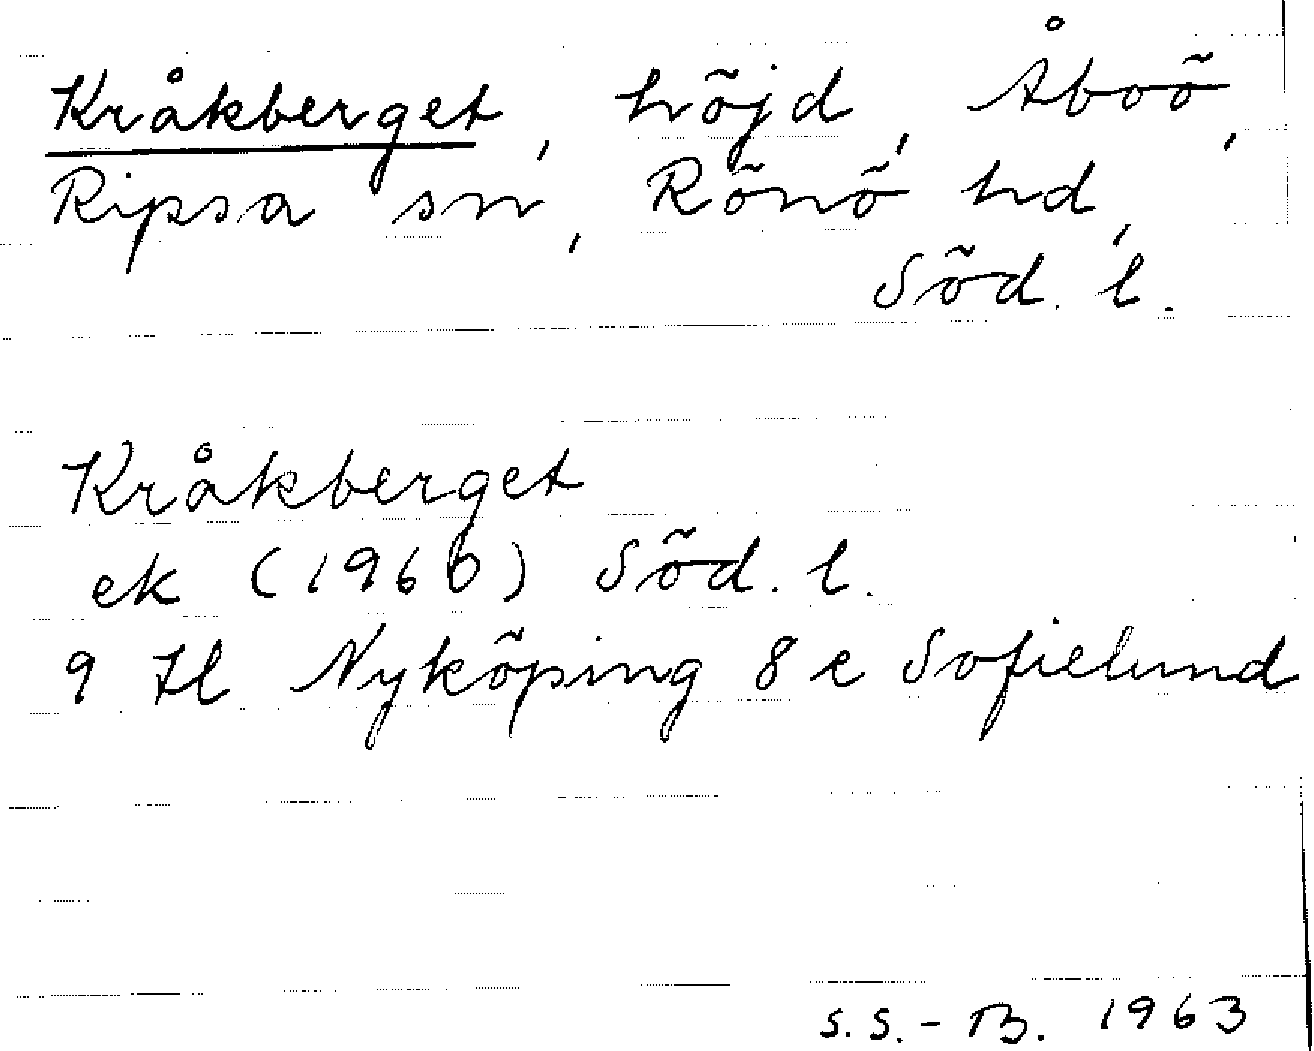 Kråkberget, höjd, Åboö,
Ripsa sn, Rönö hd,
Söd. l.
Kråkberget
ek (1960) Söd. l.
9 Hl Nyköping 8 e Sofielund
S.S.-B. 1963